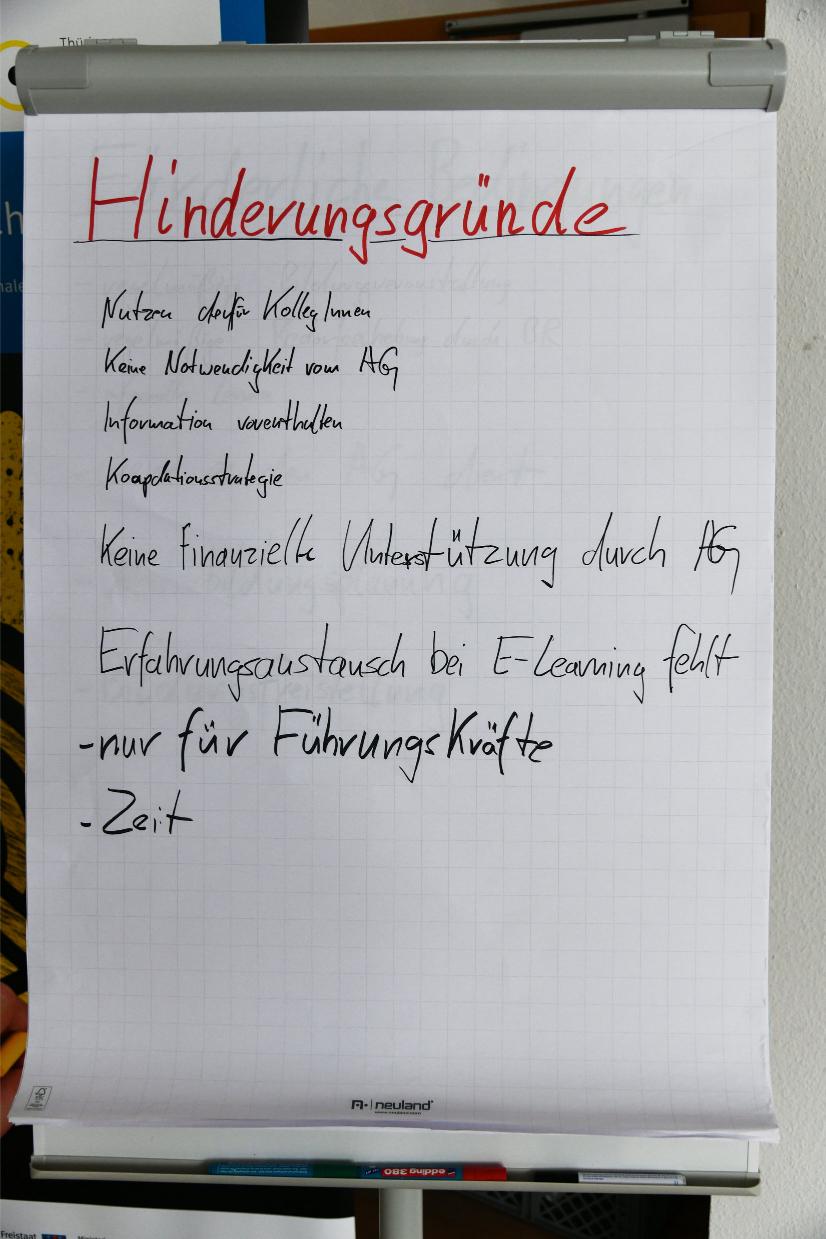 Thü
Hinderungsgründe
Nutzen für KollegInnen
Keine Notwendigkeit vom AG
Information vorenthalten
Keine finanzielle Unterstützung durch AG
Erfahrungsaustausch bei E-Learning fehlt
-nur für Führungskräfte
-Zeit
neuland
edding 380
Freistaat